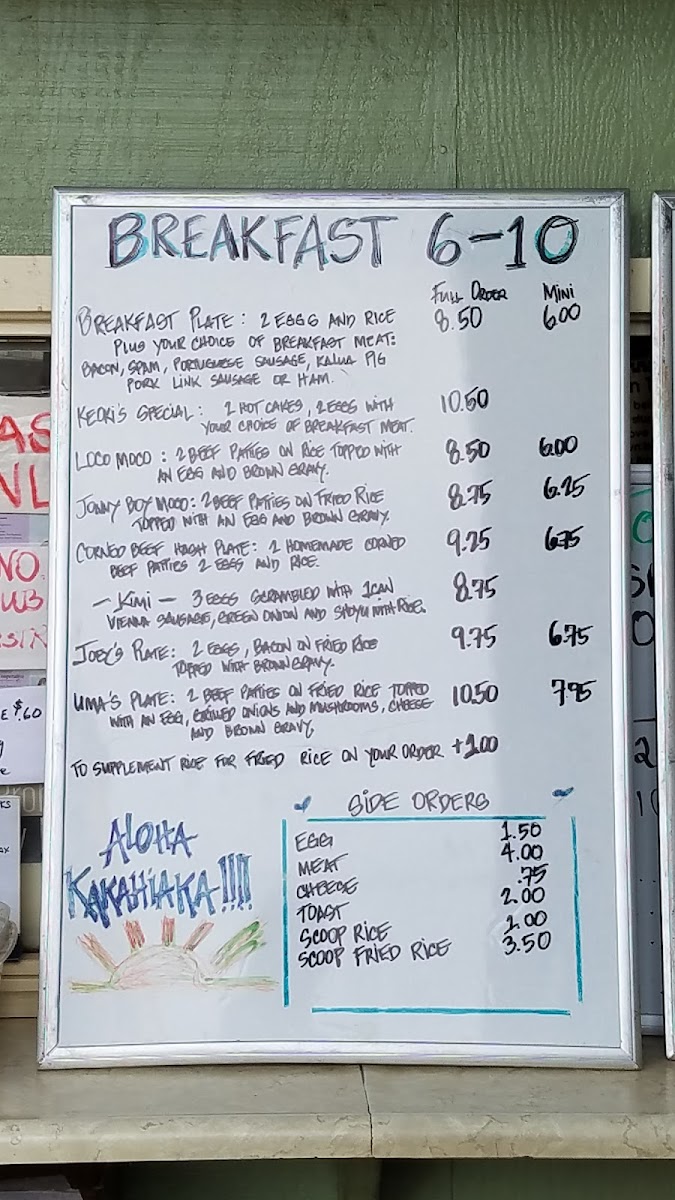 BREAKFAST 6-10
FULL ORDER MINI
BREAKFAST PLATE: 2 EGGS AND RICE 8.50 6.00
PLUS YOUR CHOICE OF BREAKFAST MEAT:
BACON, SPAM, PORTUGUESE SAUSAGE, KALUA PIG
PORK LINK SAUSAGE OR HAM.
KEOKI'S SPECIAL: 2 HOT CAKES, 2 EGGS WITH 10.50
YOUR CHOICE OF BREAKFAST MEAT.
LOCO MOCO: 2 BEEF PATTIES ON RICE TOPPED WITH 8.50 6.00
AN EGG AND BROWN GRAVY.
JONNY BOY MOCO: 2 BEEF PATTIES ON FRIED RICE 8.75 6.25
TOPPED WITH AN EGG AND BROWN GRAVY.
CORNED BEEF HASH PLATE: 2 HOMEMADE CORNED 9.25 6.75
BEEF PATTIES 2 EGGS AND RICE.
- KIMI - 3 EGGS SCRAMBLED WITH 1 CAN 8.75
VIENNA SAUSAGE, GREEN ONION AND SHOYU WITH RICE.
JOEY'S PLATE: 2 EGGS, BACON ON FRIED RICE 9.75 6.75
TOPPED WITH BROWN GRAVY.
UMA'S PLATE: 2 BEEF PATTIES ON FRIED RICE TOPPED 10.50 7.95
WITH AN EGG, GRILLED ONIONS AND MUSHROOMS, CHEESE
AND BROWN GRAVY
TO SUPPLEMENT RICE FOR FRIED RICE ON YOUR ORDER +1.00
SIDE ORDERS
EGG 1.50
MEAT 4.00
CHEESE .75
TOAST 2.00
SCOOP RICE 2.00
SCOOP FRIED RICE 3.50
ALOHA
KAKAHIAKA!!!!
AS
NL
NO
UB
E $.60